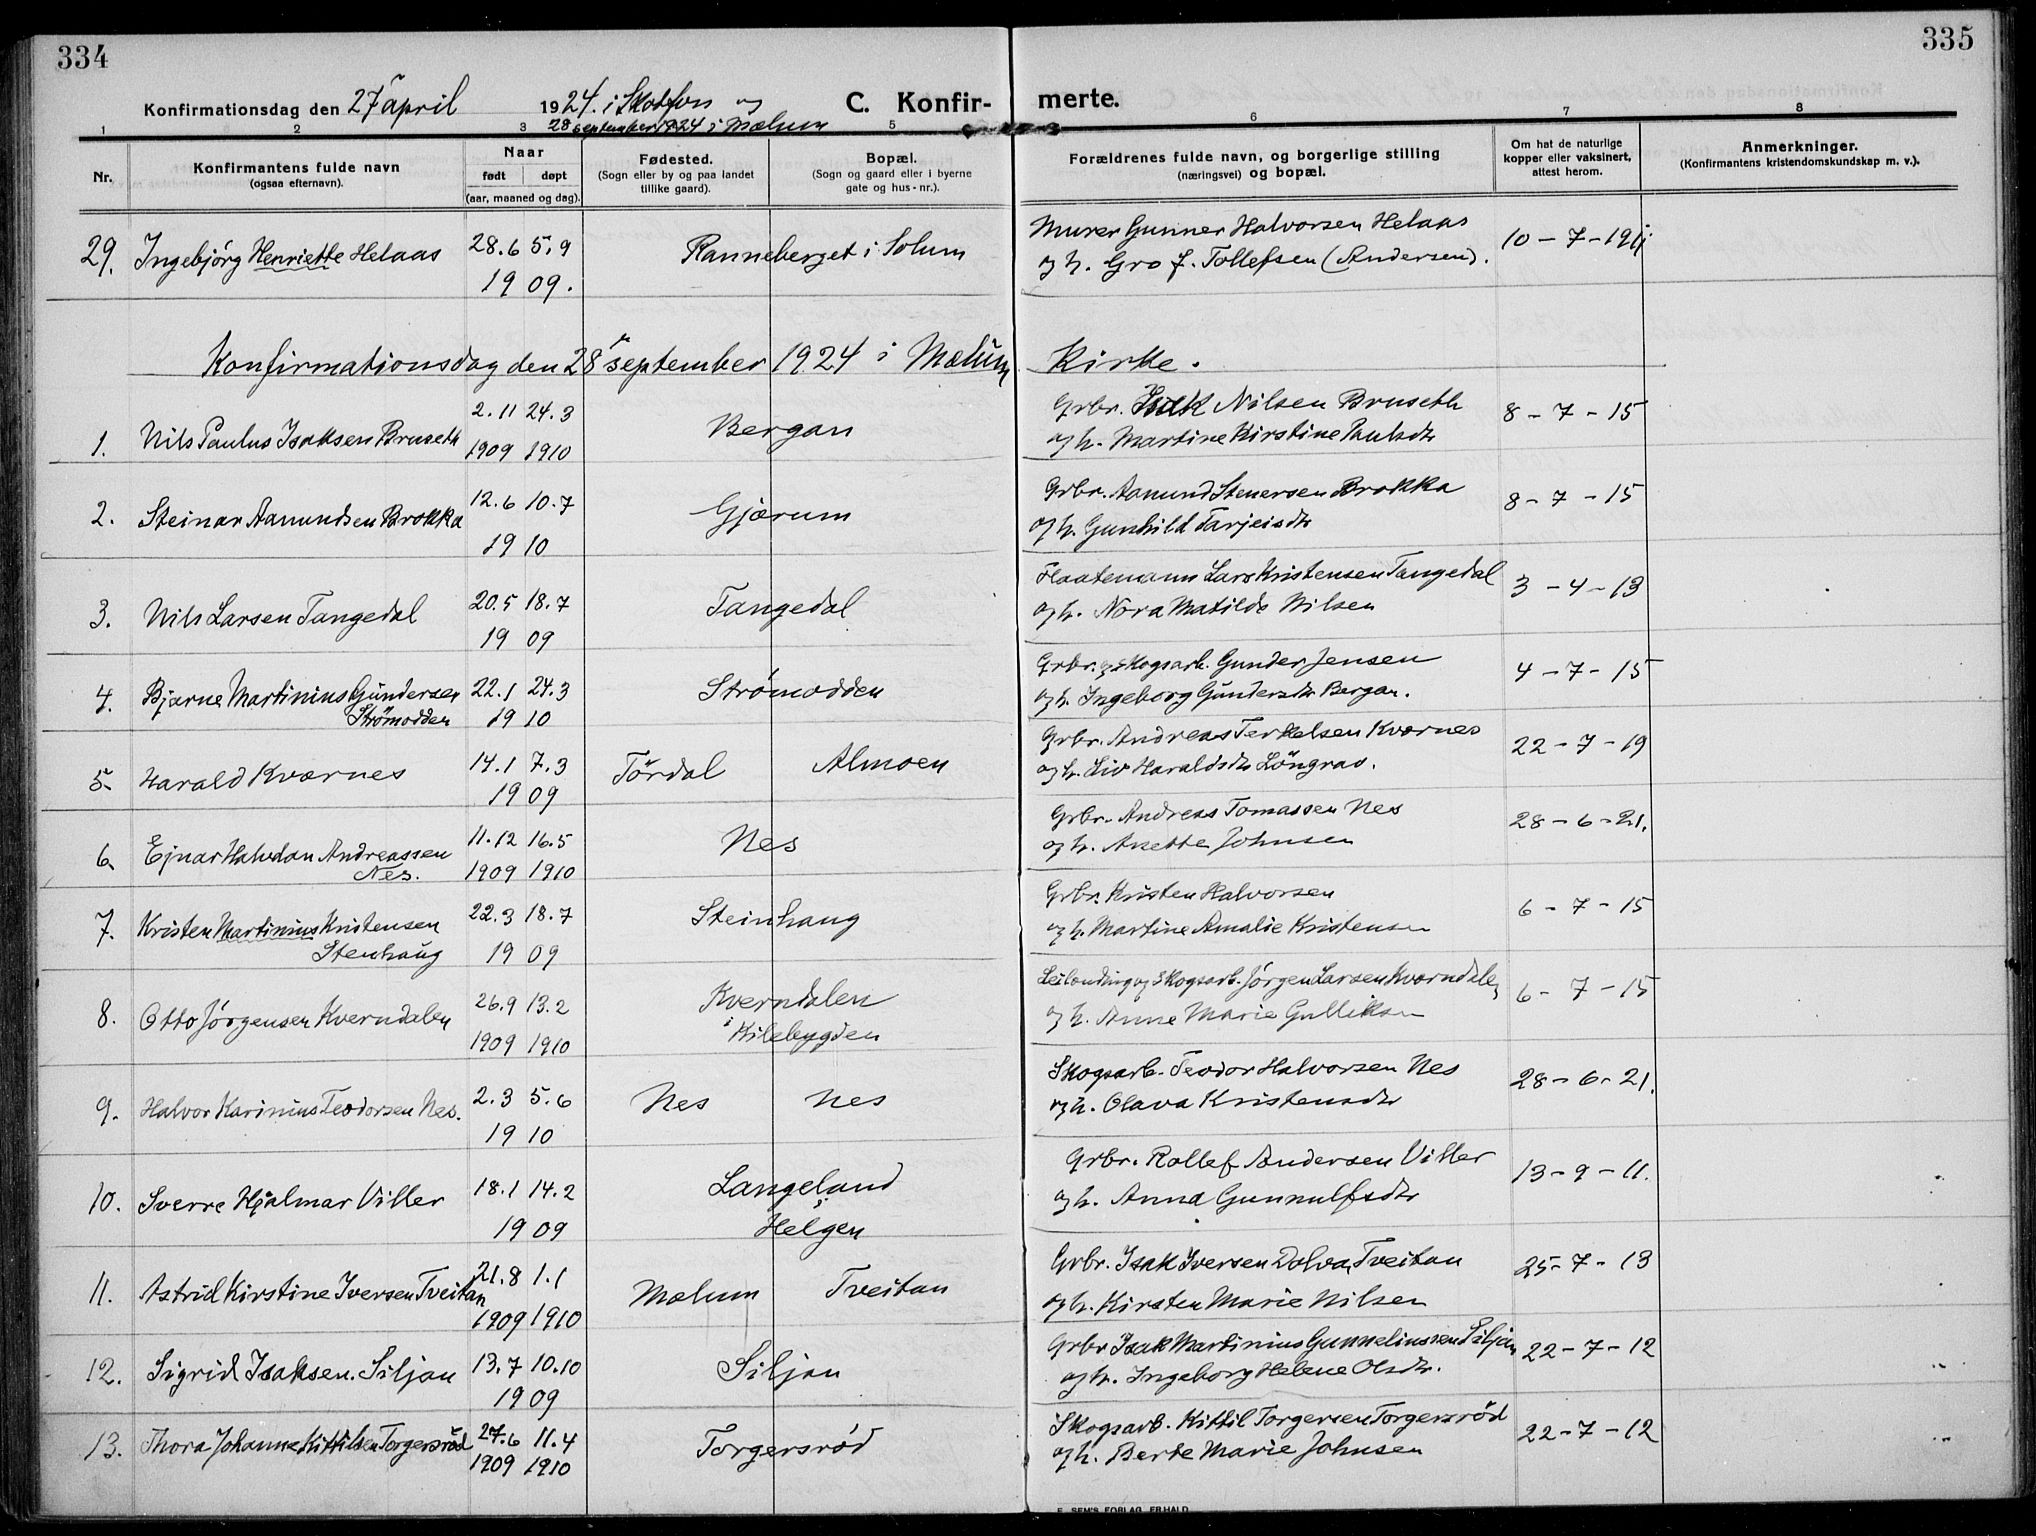 334
335
Konfirmationsdag den 27 april 1924. i Skotfos og
28 september 1924 i Mælum
C. Konfirmerte.
1 2 3 5 6 7 8
Nr.
Konfirmantens fulde navn
(ogsaa efternavn).
Naar
født døpt
(aar, maaned og dag).
Fødested.
(Sogn eller by og paa landet
tillike gaard).
Bopæl.
(Sogn og gaard eller i byerne
gate og hus-nr.).
Forældrenes fulde navn, og borgerlige stilling
(næringsvei) og bopæl.
Om hat de naturlige
kopper eller vaksinert,
attest herom.
Anmerkninger.
(Konfirmantens kristendomskundskap m. v.).
29. Ingebjörg Henriette Helaas 28.6 5.9 Ranneberget i Solum Murer Gunner Halvorsen Helaas 10-7-1911
1909. og h. Gro f. Tollefsen (Andersen).
Konfirmationsdag den 28 september 1924 i Mælum Kirke.
1. Nils Paulus Isaksen Bruseth 2.11 24.3 Bergan Grbr. Isak Nilsen Bruseth 8-7-15
1909 1910 og h. Martine Kirstine Paulsdtr
2. Steinar Aamundsen Brokka 12.6 10.7 Gjærum Grbr. Aamund Stenersen Brokka 8-7-15
1910 og h. Gunhild Tarjeisdtr
3. Nils Larsen Tangedal 20.5 18.7 Tangedal Flaatemann Lars Kristensen Tangedal 3-4-13
1909 og h. Nora Matilde Nilsen
4. Bjarne Martinius Gundersen 22.1 24.3 Strømodden Grbr. og skogsarb. Gunder Jensen 4-7-15
Strømodden 1910 og h. Ingeborg Gundersdtr Bergan.
5. Harald Kværnes 14.1 7.3 Tördal Almoen Grbr. Andreas Terkelsen Kværnes 22-7-19
1909 og h. Liv Haraldsdtr Löngrav.
6. Ejnar Halvdan Andreassen 11.12 16.5 Nes Grbr. Andreas Tomassen Nes 28-6-21.
Nes. 1909 1910 og h. Anette Johnsen
7. Kristen Martinius Kristensen 22.3 18.7 Steinhaug Grbr. Kristen Halvorsen 6-7-15
Stenhaug 1909 og h. Martine Amalie Kristensen
8. Otto Jörgensen Kverndalen 26.9 13.2 Kverndalen Leilending og skogsarb. Jørgen Larsen Kværndalen 6-7-15
1909 1910 i Kilebygden og h. Anne Marie Gulliksen
9. Halvor Karinius Teodorsen Nes. 2.3 5.6 Nes Nes Skogsarb. Teodor Halvorsen Nes 28-6-21.
1910 og h. Olava Kristensdtr
10. Sverre Hjalmar Viller 18.1 14.2 Langeland Grbr. Rollef Andersen Viller 13-9-11.
1909 i Helgen og h. Anna Gunnulfsdtr
11. Astrid Kirstine Iversen Tveitan 21.8 1.1 Mælum Tveitan Grbr. Isak Iversen Dolva, Tveitan 25-7-13
1909 1910 og h. Kirsten Marie Nilsen
12. Sigrid Isaksen. Siljan 13.7 10.10 Siljan Grbr Isak Martinius Gunnelinssen Siljan 22-7-12
1909 og h. Ingeborg Helene Olsdtr.
13. Thora Johanne Kittilsen Torgersröd 27.6 11.4 Torgersrød Skogsarb. Kittil Torgersen Torgersrød 22-7-12
1909 1910 og h. Berte Marie Johnsen
E. SEM'S FORLAG, FR.HALD